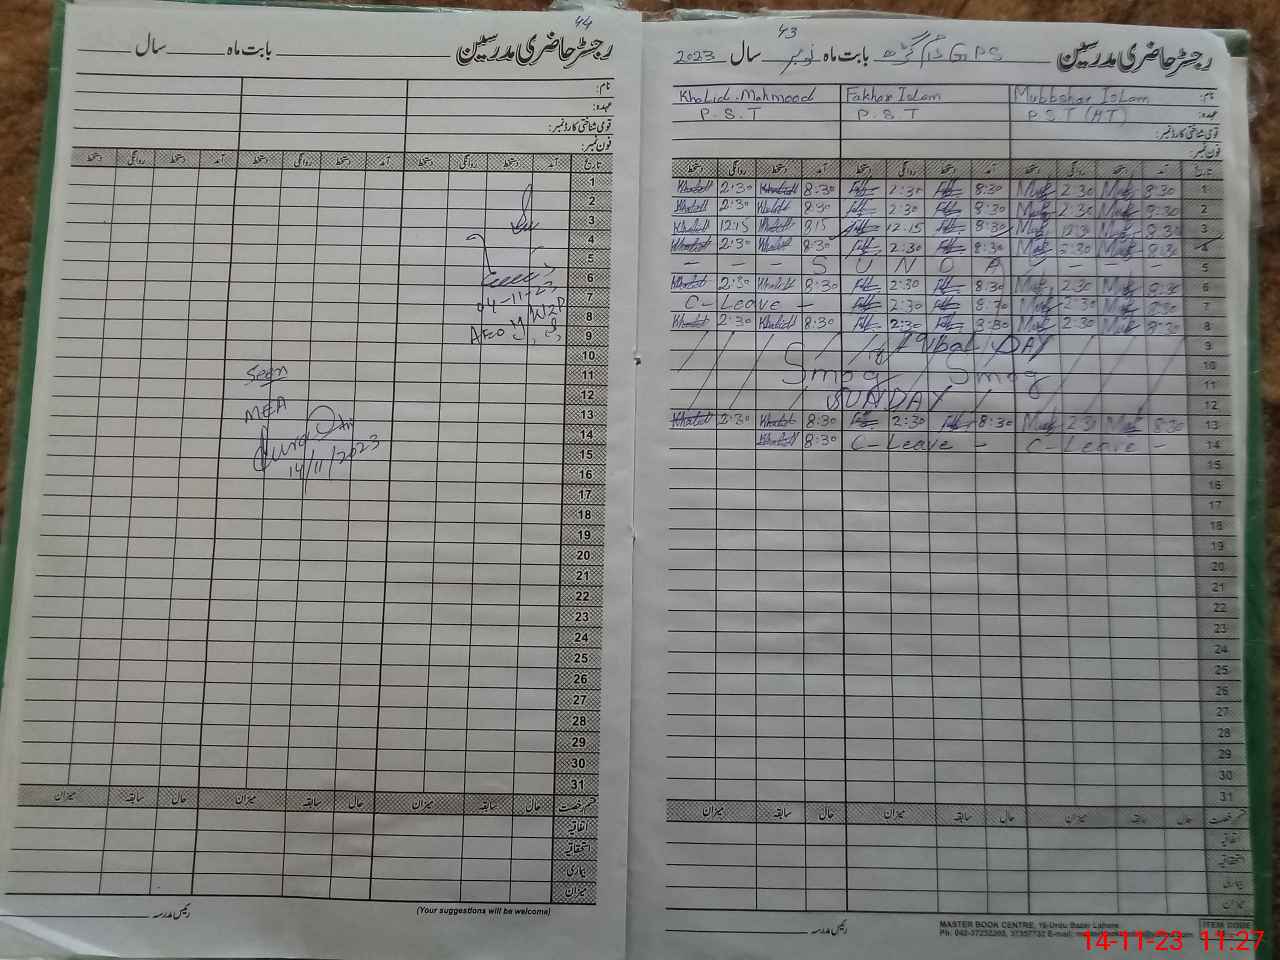 44
رجسٹر حاضری مدرسین بابت ماہ سال
نام:
عہدہ:
قومی شناختی کارڈ نمبر:
فون نمبر:
تاریخ آمد دستخط روانگی دستخط آمد دستخط روانگی دستخط آمد دستخط روانگی دستخط
1
2
3
4
5
6
7
8
9
10
11
12
13
14
15
16
17
18
19
20
21
22
23
24
25
26
27
28
29
30
31
04-11-23
AEO
Seen
MEA
14/11/2023
قسم رخصت حال سابقہ میزان حال سابقہ میزان حال سابقہ میزان
اتفاقیہ
استحقاقیہ
بیماری
میزان
رئیس مدرسہ
(Your suggestions will be welcome)
43
رجسٹر حاضری مدرسین GPS بابت ماہ نومبر سال 2023
نام: Mubbshar Islam Fakhar Islam Khalid Mahmood
عہدہ: P.S.T (HT) P.S.T P.S.T
قومی شناختی کارڈ نمبر:
فون نمبر:
تاریخ آمد دستخط روانگی دستخط آمد دستخط روانگی دستخط آمد دستخط روانگی دستخط
Khalid 2:30 Khalid 8:30 2:30 8:30 2:30 8:30 1
Khalid 2:30 Khalid 8:30 2:30 8:30 2:30 8:30 2
Khalid 12:15 Khalid 8:15 12:15 8:30 8:30 3
Khalid 2:30 Khalid 8:30 2:30 8:30 2:30 8:30 4
- - - S U N D A Y - - - 5
Khalid 2:30 Khalid 8:30 2:30 8:30 2:30 8:30 6
C-Leave - 2:30 8:30 2:30 8:30 7
Khalid 2:30 Khalid 8:30 2:30 8:30 2:30 8:30 8
Iqbal DAY 9
Smog Smog 10
11
SUNDAY 12
Khalid 2:30 Khalid 8:30 2:30 8:30 2:30 8:30 13
Khalid 8:30 C-Leave - C-Leave - 14
15
16
17
18
19
20
21
22
23
24
25
26
27
28
29
30
31
قسم رخصت حال سابقہ میزان حال سابقہ میزان حال سابقہ میزان
اتفاقیہ
استحقاقیہ
بیماری
میزان
رئیس مدرسہ
MASTER BOOK CENTRE, 16-Urdu Bazar Lahore
Ph: 042-37232205, 37357732 E-mail:
ITEM CODE
14-11-23 11:27